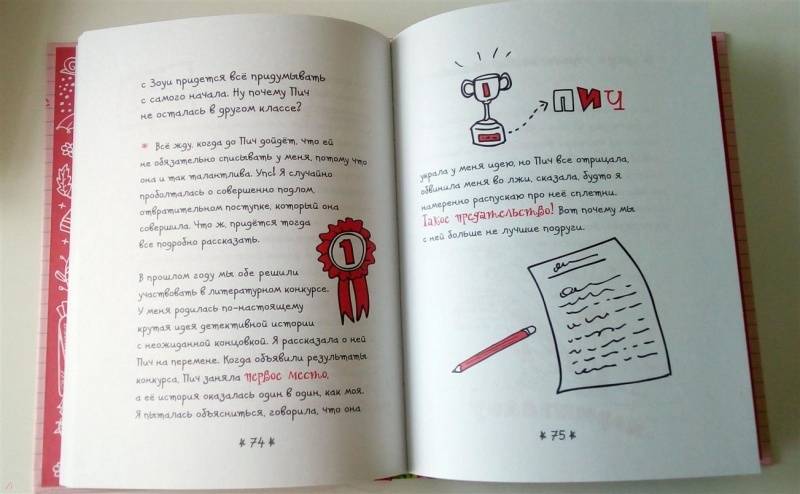 с Зоуи придется всё придумывать
с самого начала. Ну почему Пич
не осталась в другом классе?
* Всё жду, когда до Пич дойдёт, что ей
не обязательно списывать у меня, потому что
она и так талантлива. Упс! Я случайно
проболталась о совершенно подлом,
отвратительном поступке, который она
совершила. Что ж, придётся тогда
все подробно рассказать.
1
В прошлом году мы обе решили
участвовать в литературном конкурсе.
У меня родилась по-настоящему
крутая идея детективной истории
с неожиданной концовкой. Я рассказала о ней
Пич на перемене. Когда объявили результаты
конкурса, Пич заняла первое место,
а её история оказалась один в один, как моя.
Я пыталась объясниться, говорила, что она
* 74 *
1
ПИЧ
украла у меня идею, но Пич все отрицала,
обвинила меня во лжи, сказала, будто я
намеренно распускаю про неё сплетни.
Такое предательство! Вот почему мы
с ней больше не лучшие подруги.
* 75 *